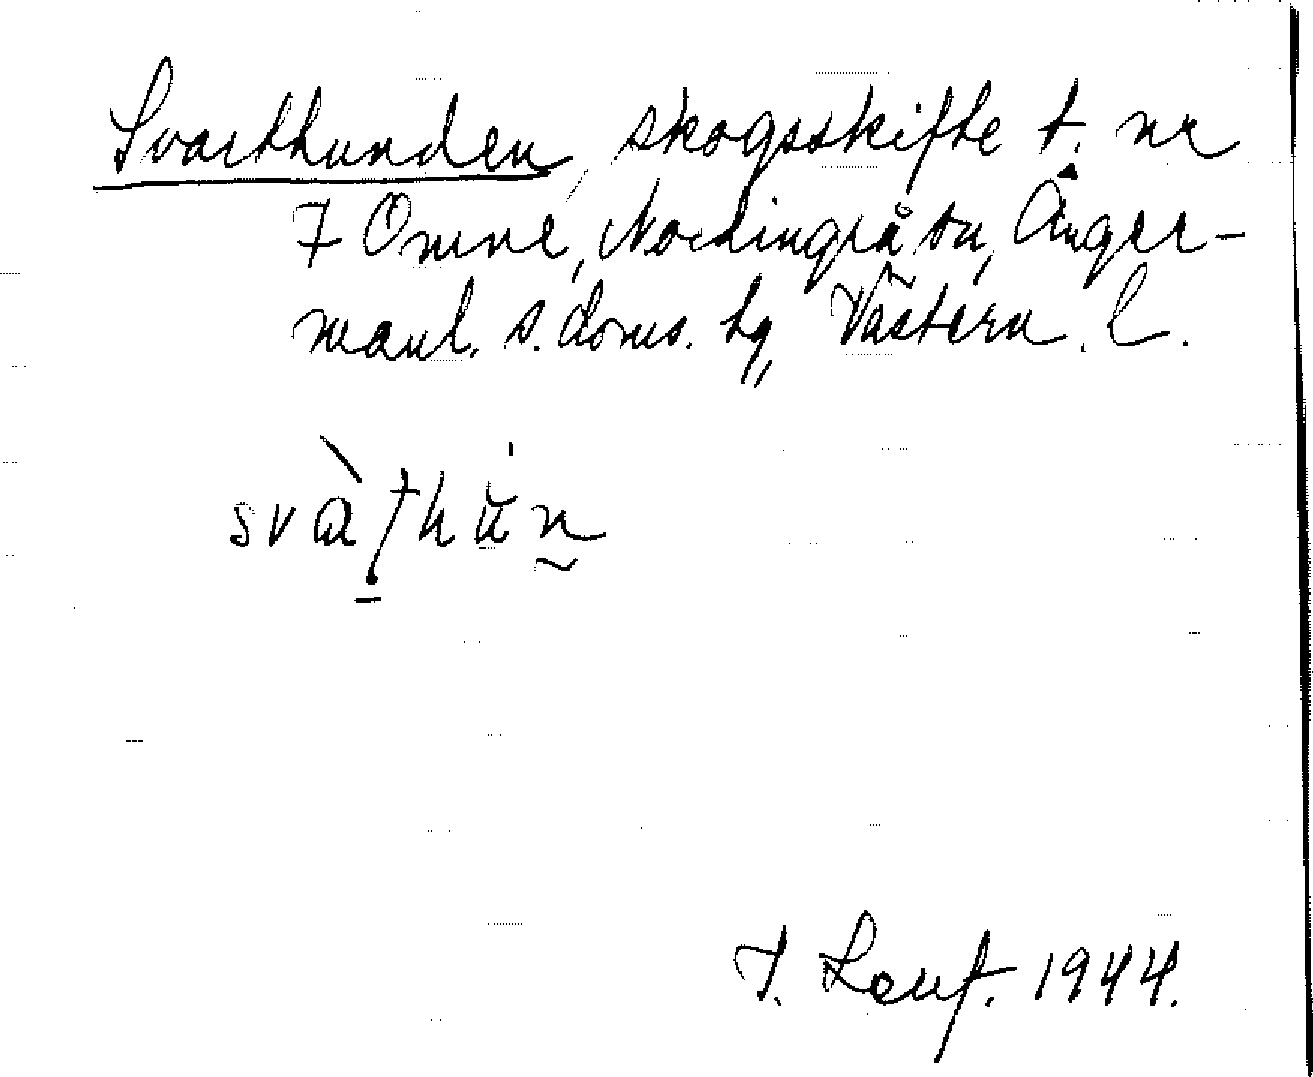 Svarthunden, skogsskifte t. nr
7 Omne, Nordingrå sn, Ånger-
manl. s. doms. hg, Västern. l.
svàthún
J. Lenf. 1944.